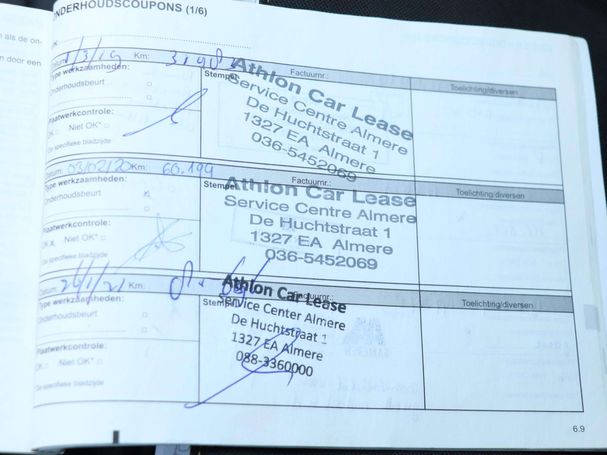 ONDERHOUDSCOUPONS (1/6)
n als de on-
n door een
OK
Datum: 1/3/19 Km:
Type werkzaamheden:
Onderhoudsbeurt
Plaatwerkcontrole:
Niet OK*
De specifieke bladzijde
Stempel
Factuurnr.:
Athlon Car Lease
Service Centre Almere
De Huchtstraat 1
1327 EA Almere
036-5452069
Toelichting/diversen
Datum: 03/02/20 Km: 60.199
Type werkzaamheden:
Onderhoudsbeurt
Plaatwerkcontrole:
OK Niet OK*
De specifieke bladzijde
Stempel
Factuurnr.:
Athlon Car Lease
Service Centre Almere
De Huchtstraat 1
1327 EA Almere
036-5452069
Toelichting/diversen
Datum: 26/1/21 Km:
Type werkzaamheden:
Onderhoudsbeurt
Plaatwerkcontrole:
OK Niet OK*
De specifieke bladzijde
Stempel
Factuurnr.:
Athlon Car Lease
Service Center Almere
De Huchtstraat 1
1327 EA Almere
088-3360000
Toelichting/diversen
6.9